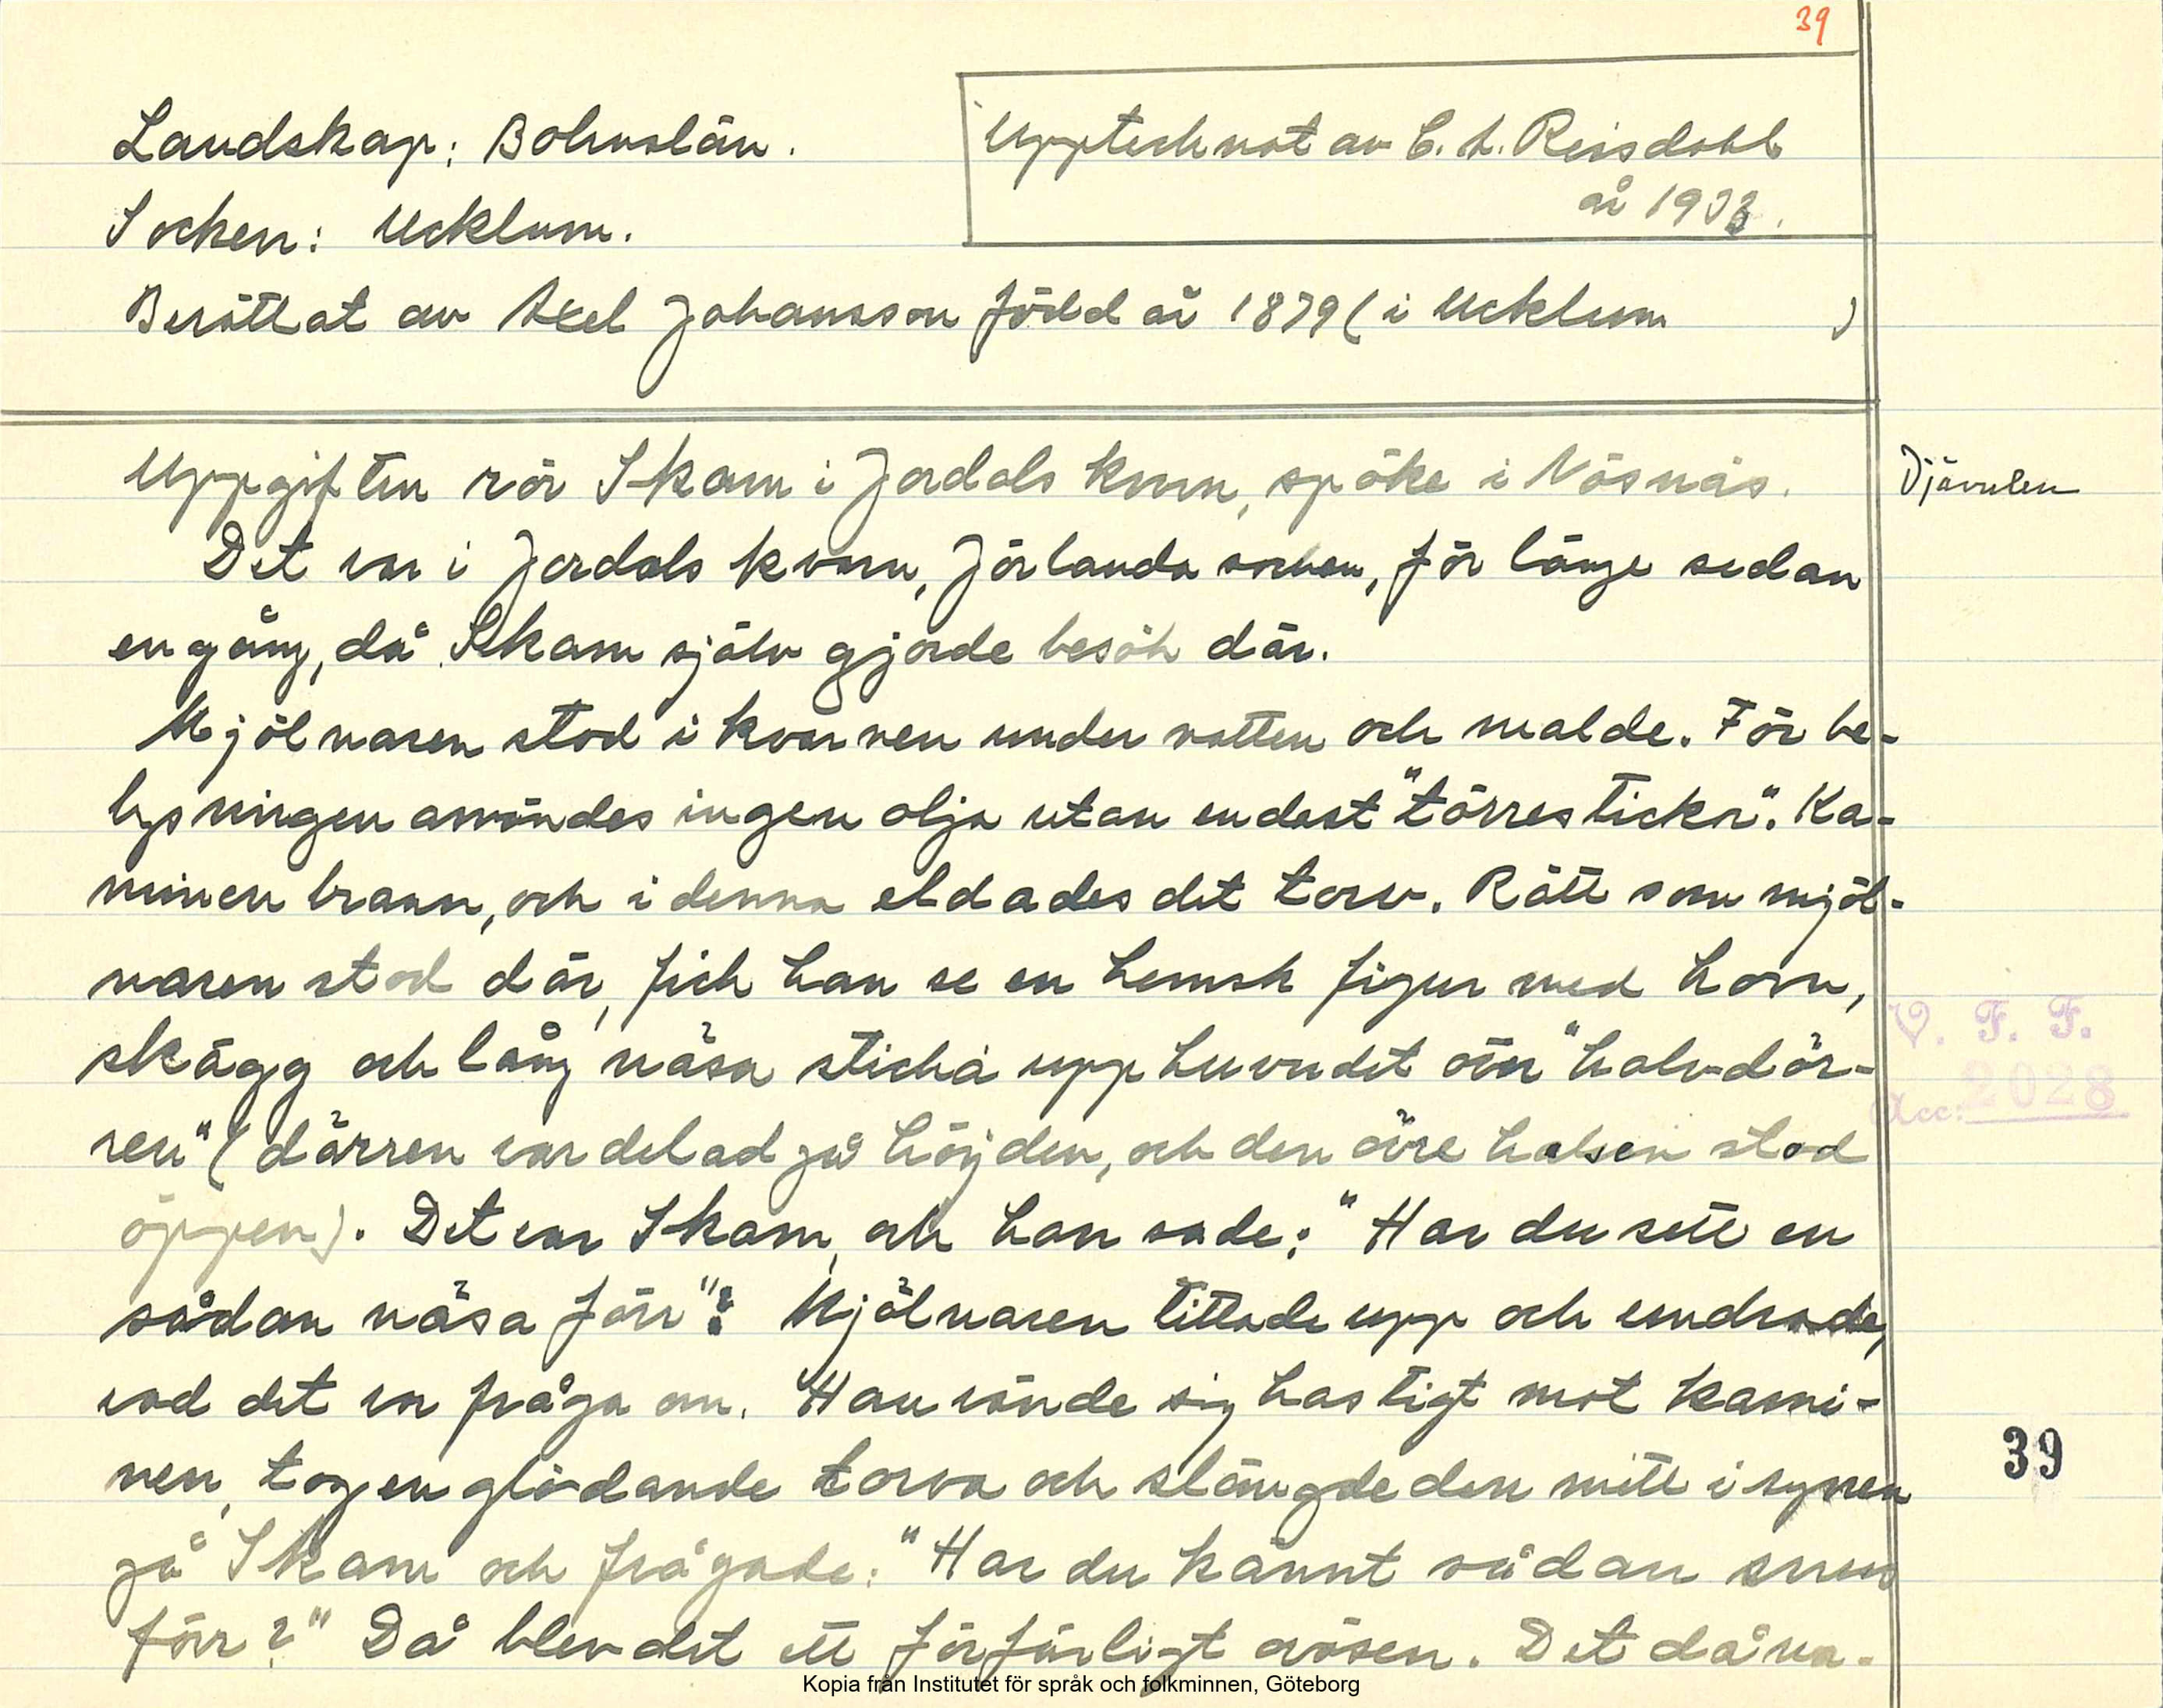 39
Landskap: Bohuslän.
Upptecknat av C. A. Reisdahl
år 1933.
Socken: Ucklum.
Berättat av Axel Johansson född år 1879 (i Ucklum )
Uppgiften rör Skam i Jordals kvarn, spöke i Nösnäs.
Djävulen
Det var i Jordals kvarn, Jörlanda socken, för länge sedan
en gång, då Skam själv gjorde besök där.
Mjölnaren stod i kvarnen under natten och malde. För be-
lysningen användes ingen olja utan endast "törresticka". Ka-
minen brann, och i denna eldades det torv. Rätt som mjöl-
naren stod där, fick han se en hemsk figur med horn,
skägg och lång näsa sticka upp huvudet över "halvdör-
ren" (dörren var delad på höjden, och den övre halvan stod
öppen). Det var Skam, och han sade: "Har du sett en
sådan näsa förr"? Mjölnaren tittade upp och undrade,
vad det var fråga om. Han vände sig hastigt mot kami-
nen, tog en glödande torva och slängde den mitt i synen
på Skam och frågade: "Har du kännt sådan snus
förr?" Då blev det ett förfärligt oväsen. Det dåna-
V. F. F.
Acc: 2028
39
Kopia från Institutet för språk och folkminnen, Göteborg